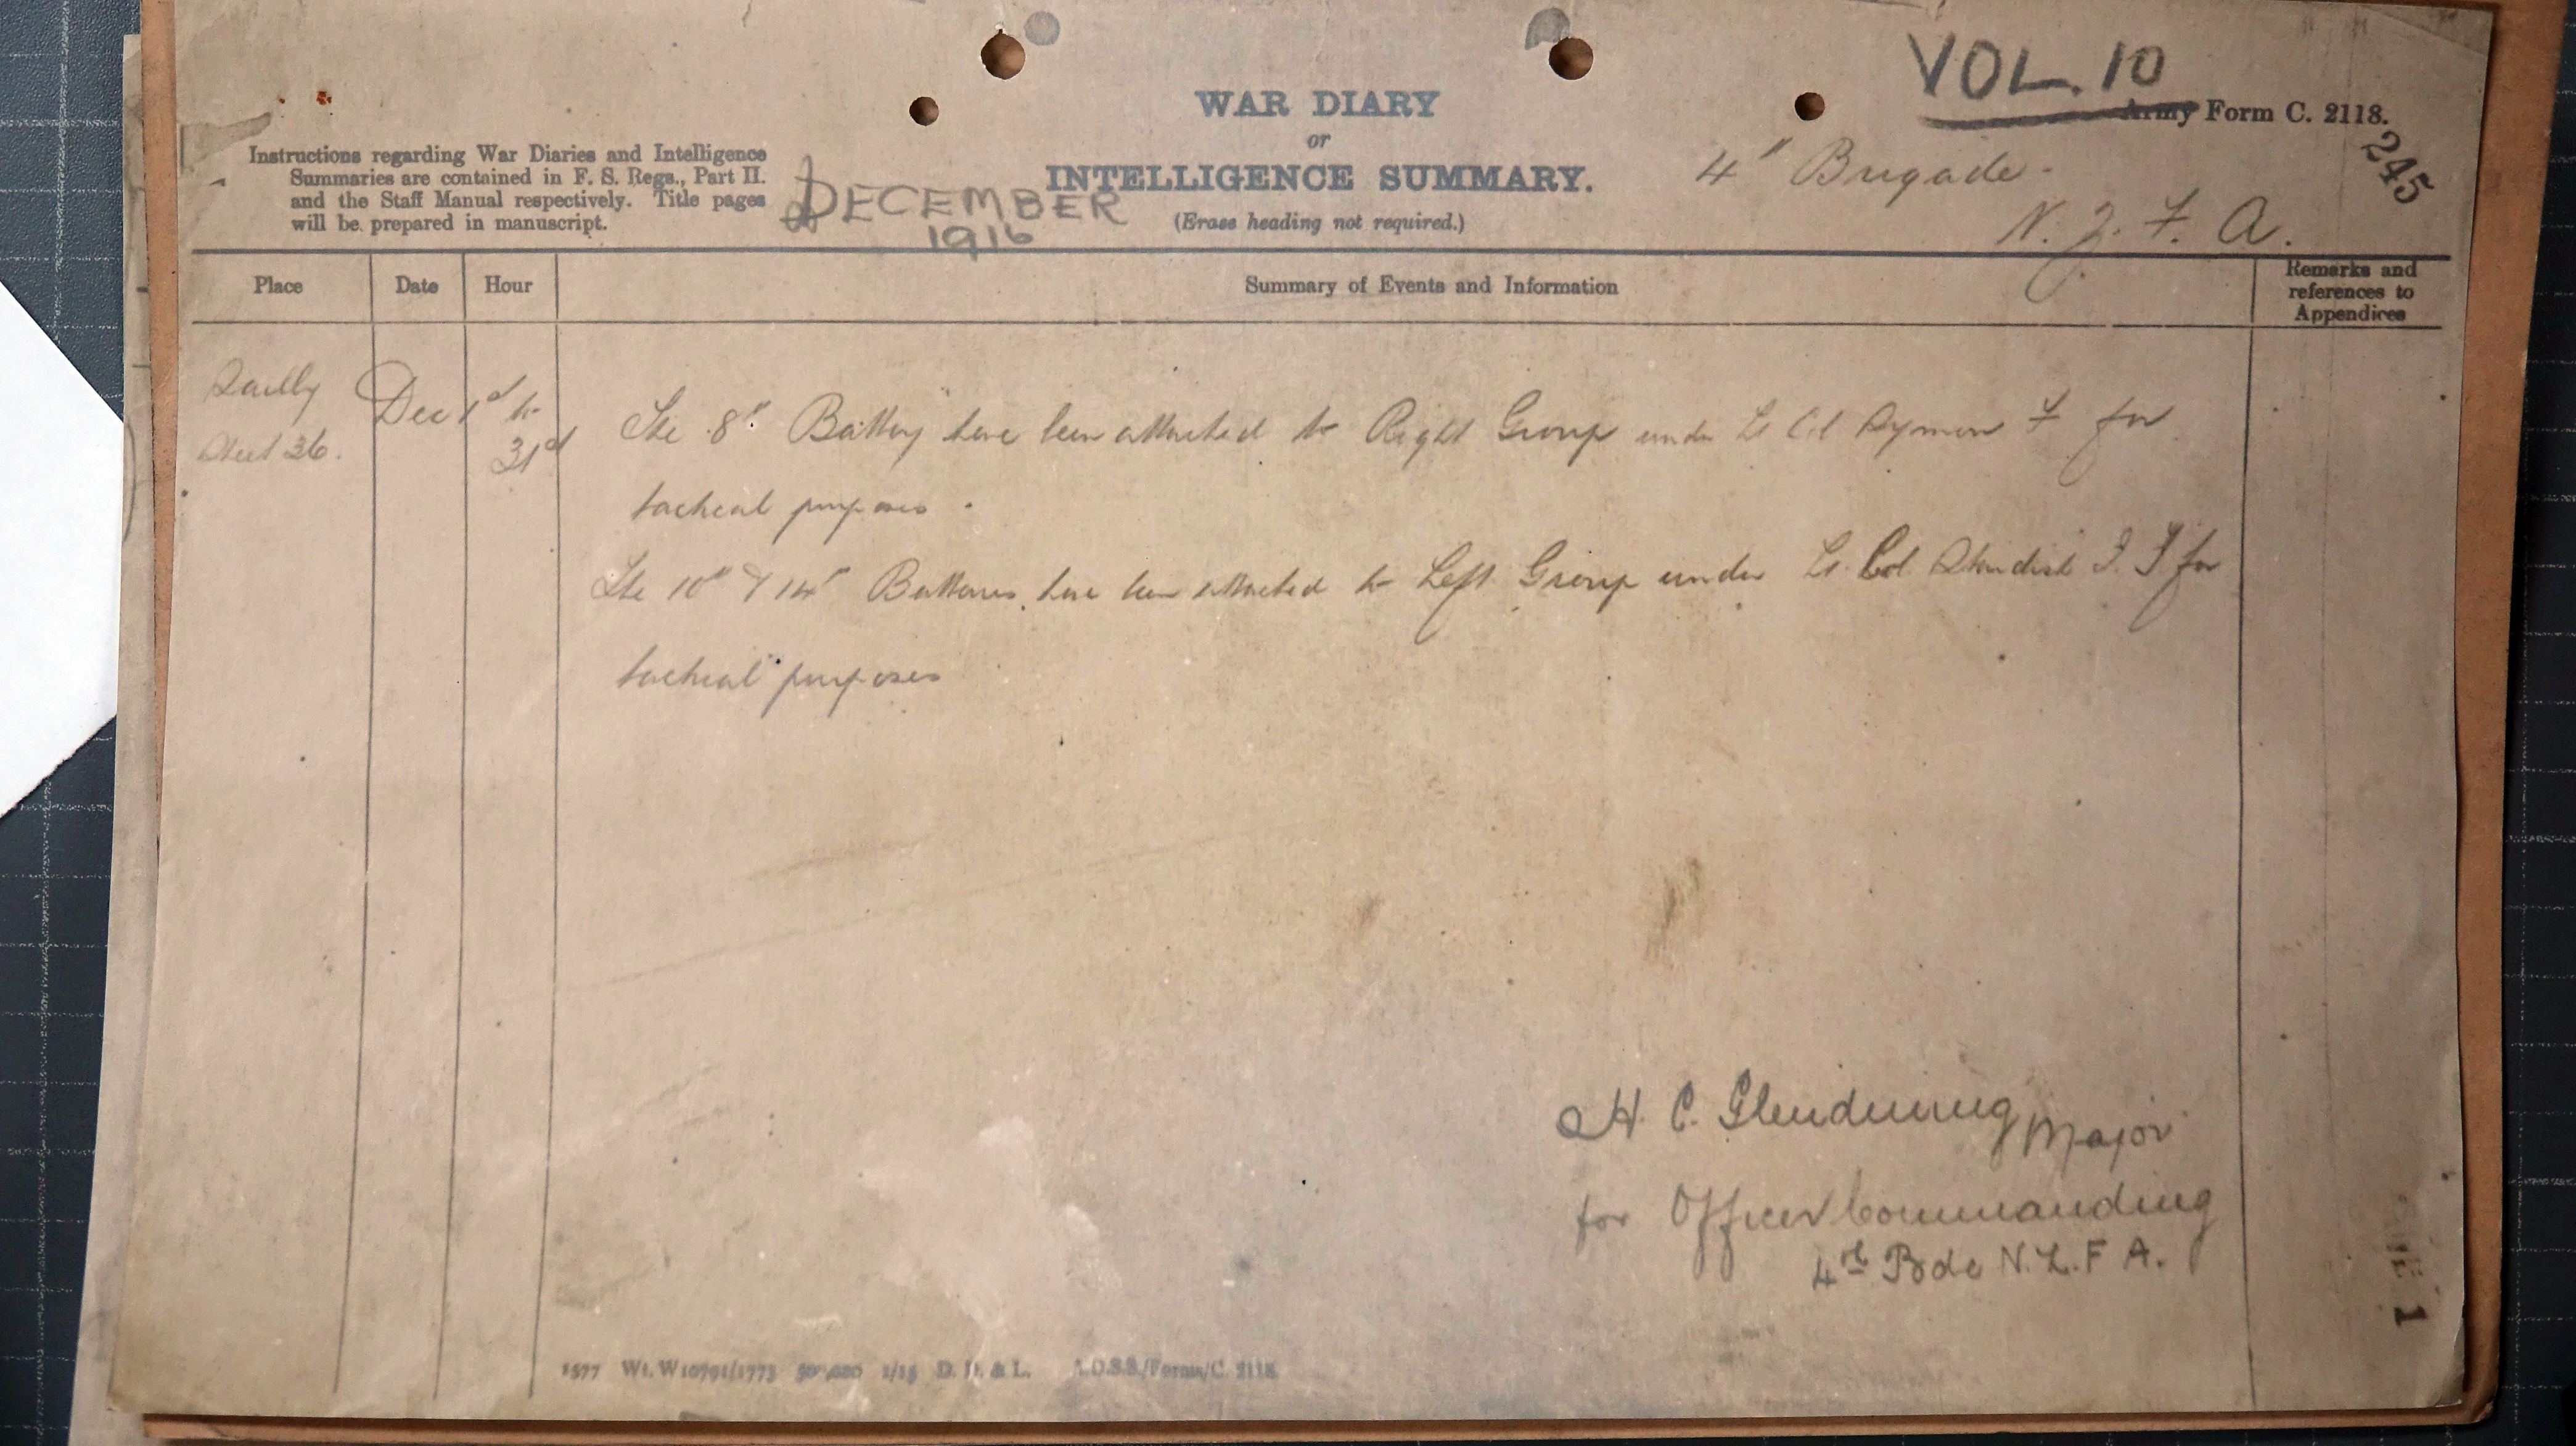 VOL. 10
Army Form C. 2118.
245
WAR DIARY
or
INTELLIGENCE SUMMARY.
(Erase heading not required.)
Instructions regarding War Diaries and Intelligence
Summaries are contained in F. S. Regs., Part II.
and the Staff Manual respectively. Title pages
will be prepared in manuscript.
DECEMBER
1916
4" Brigade.
N. Z. F. A.
Place
Date
Hour
Summary of Events and Information
Remarks and
references to
Appendices
Sailly
Sheet 36.
Dec 1st to
31st
The 8" Battery have been attached to Right Group under Lt Col Symon F for
tactical purposes.
The 10" & 14" Batteries have been attached to Left Group under Lt. Col. Standish I. T for
tactical purposes
H. C. Glendining Major
for Officer Commanding
4th Bde N.Z.F A.
1577 Wt. W10791/1773 500,000 1/15 D. D. & L. A.D.S.S./Forms/C. 2118.
1